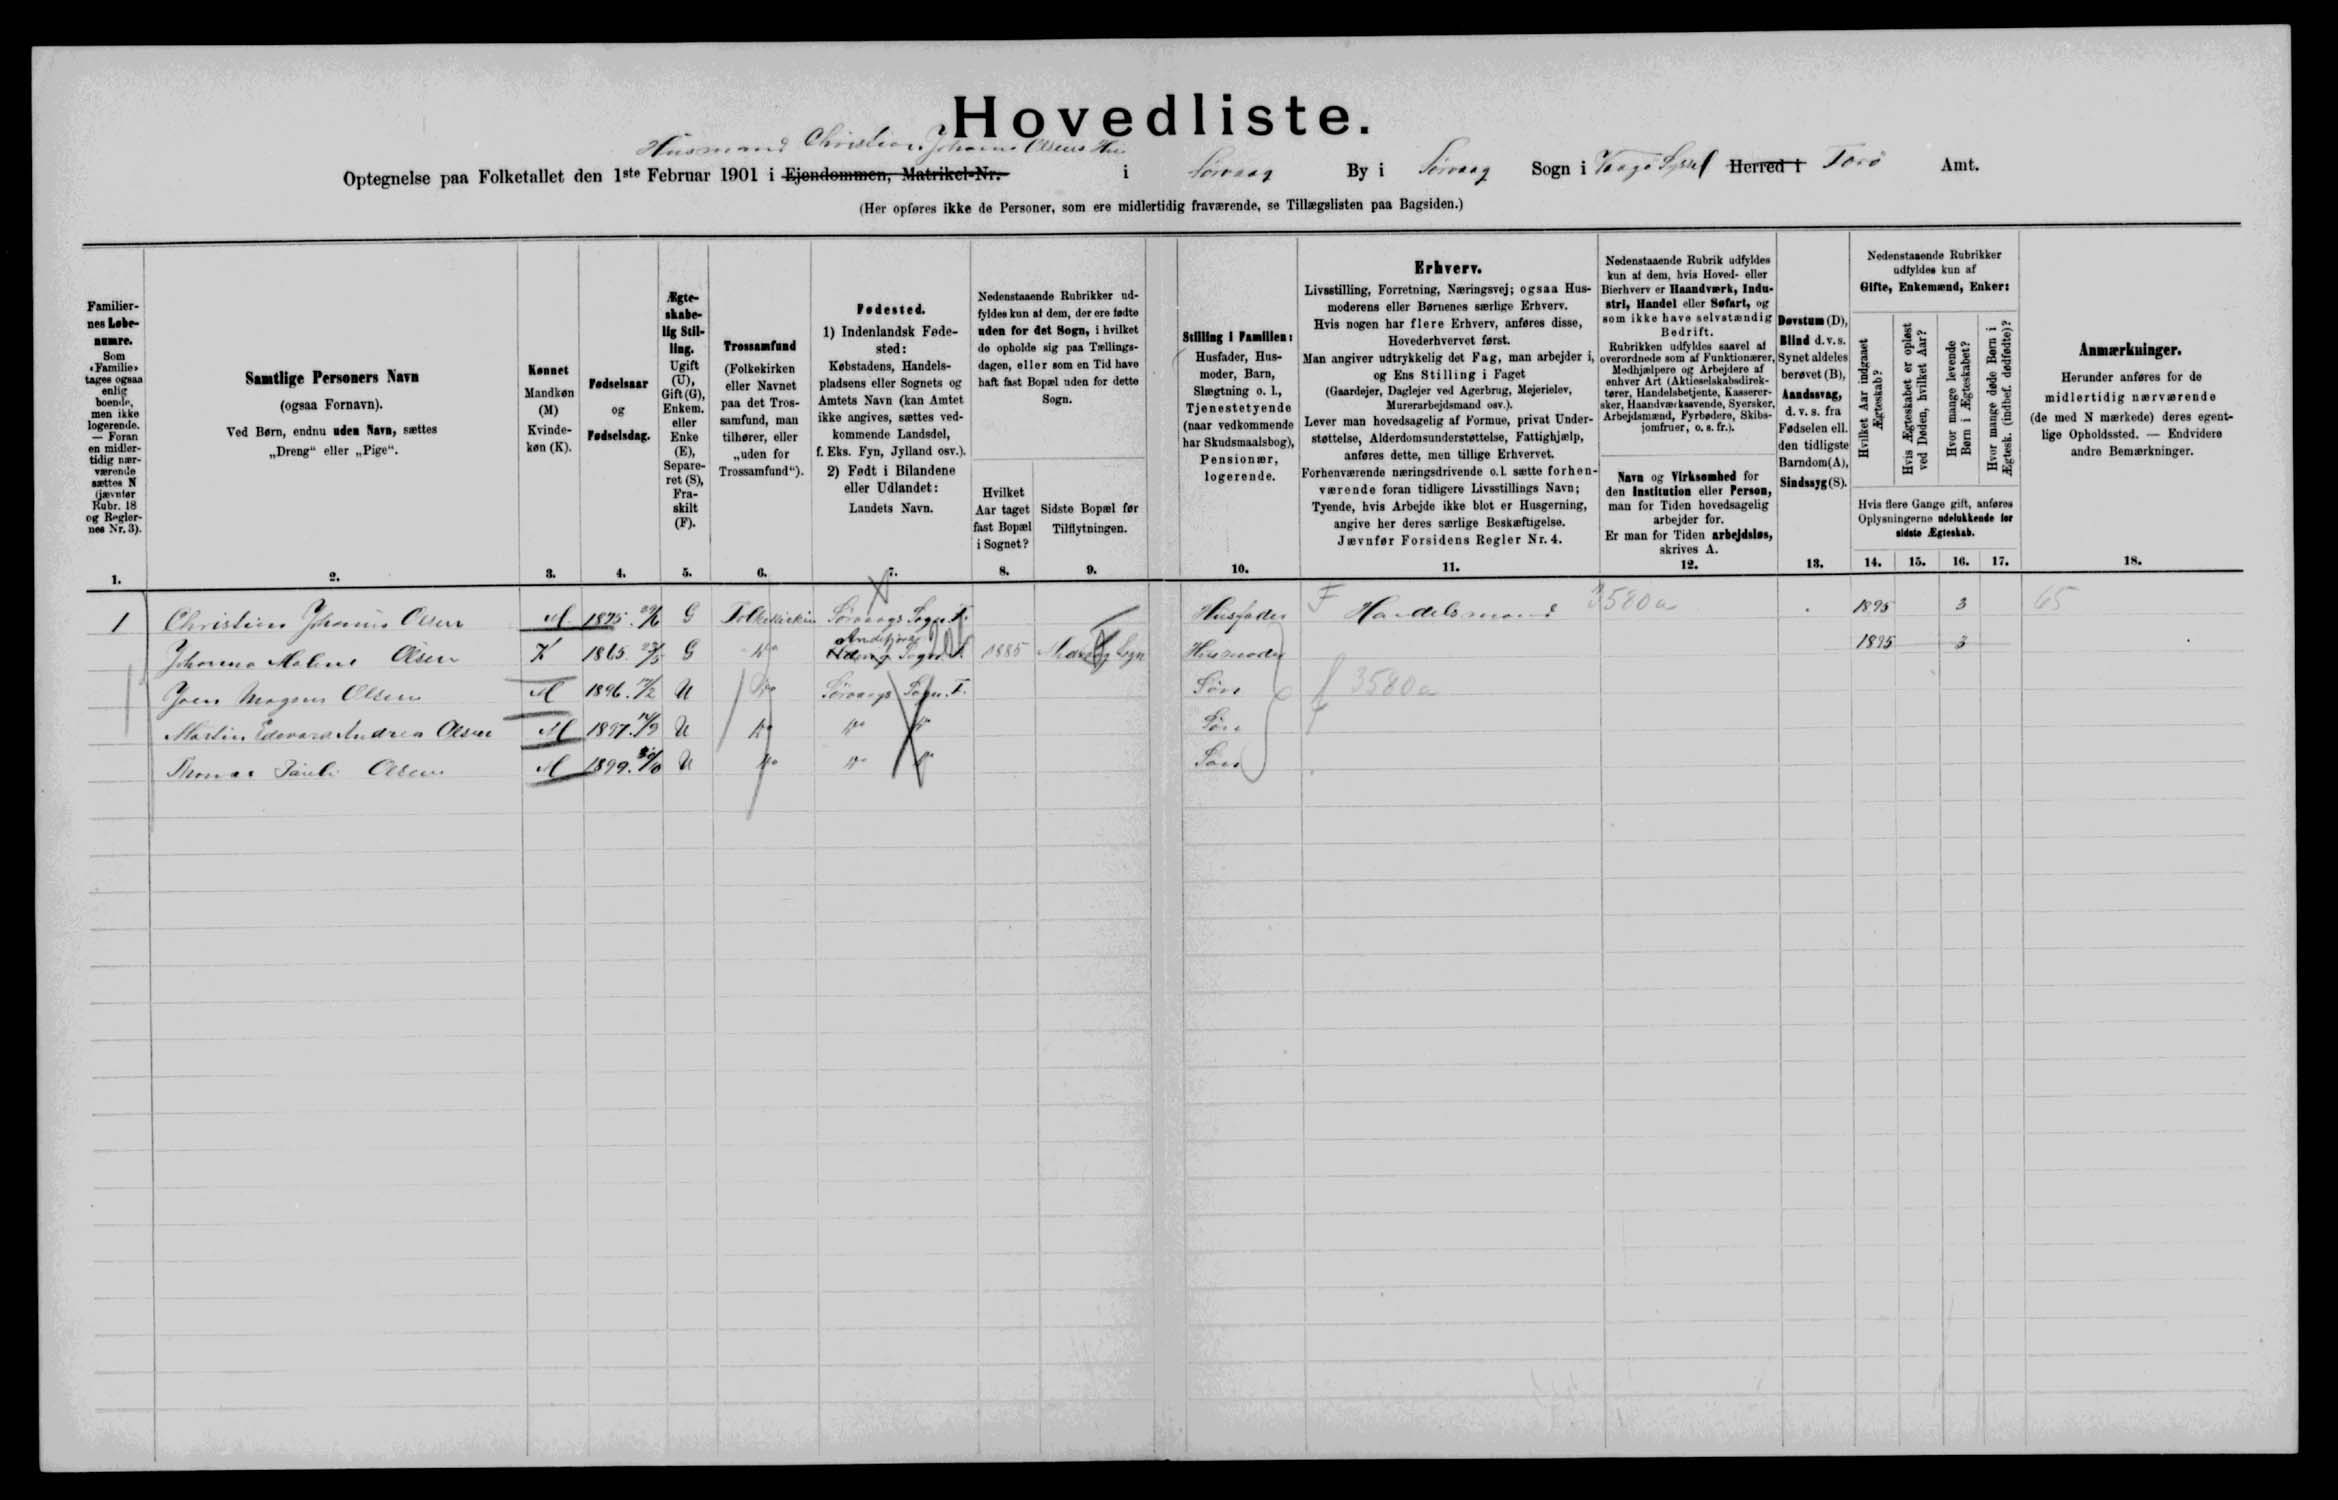 Hovedliste.
Husmand Christian Johannes Olsens Hus
Optegnelse paa Folketallet den 1ste Februar 1901 i Ejendommen, Matrikel-Nr. i Sørvaag By i Sørvaag Sogn i Vaagø Syssel Herred i Færø Amt.
(Her opføres ikke de Personer, som ere midlertidig fraværende, se Tillægslisten paa Bagsiden.)
Familier-
nes Løbe-
numre.
Som
«Familie»
tages ogsaa
enlig
boende,
men ikke
logerende.
— Foran
en midler-
tidig nær-
værende
sættes N
(jævnfør
Rubr. 18
og Regler-
nes Nr. 3).
1.
Samtlige Personers Navn
(ogsaa Fornavn).
Ved Børn, endnu uden Navn, sættes
„Dreng“ eller „Pige“.
2.
Kønnet
Mandkøn
(M)
Kvinde-
køn (K).
3.
Fødselsaar
og
Fødselsdag.
4.
Ægte-
skabe-
lig Stil-
ling.
Ugift
(U),
Gift (G),
Enkem.
eller
Enke
(E),
Separe-
ret (S),
Fra-
skilt
(F).
5.
Trossamfund
(Folkekirken
eller Navnet
paa det Tros-
samfund, man
tilhører, eller
„uden for
Trossamfund“).
6.
Fødested.
1) Indenlandsk Føde-
sted:
Købstadens, Handels-
pladsens eller Sognets og
Amtets Navn (kan Amtet
ikke angives, sættes ved-
kommende Landsdel,
f. Eks. Fyn, Jylland osv.).
2) Født i Bilandene
eller Udlandet:
Landets Navn.
7.
Nedenstaaende Rubrikker ud-
fyldes kun af dem, der ere fødte
uden for det Sogn, i hvilket
de opholde sig paa Tællings-
dagen, eller som en Tid have
haft fast Bopæl uden for dette
Sogn.
Hvilket
Aar taget
fast Bopæl
i Sognet?
8.
Sidste Bopæl før
Tilflytningen.
9.
Stilling i Familien:
Husfader, Hus-
moder, Barn,
Slægtning o. l.,
Tjenestetyende
(naar vedkommende
har Skudsmaalsbog),
Pensionær,
logerende.
10.
Erhverv.
Livsstilling, Forretning, Næringsvej; ogsaa Hus-
moderens eller Børnenes særlige Erhverv.
Hvis nogen har flere Erhverv, anføres disse,
Hovederhvervet først.
Man angiver udtrykkelig det Fag, man arbejder i,
og Ens Stilling i Faget
(Gaardejer, Daglejer ved Agerbrug, Mejerielev,
Murerarbejdsmand osv.).
Lever man hovedsagelig af Formue, privat Under-
støttelse, Alderdomsunderstøttelse, Fattighjælp,
anføres dette, men tillige Erhvervet.
Forhenværende næringsdrivende o. l. sætte forhen-
værende foran tidligere Livsstillings Navn;
Tyende, hvis Arbejde ikke blot er Husgerning,
angive her deres særlige Beskæftigelse.
Jævnfør Forsidens Regler Nr. 4.
11.
Nedenstaaende Rubrik udfyldes
kun af dem, hvis Hoved- eller
Bierhverv er Haandværk, Indu-
stri, Handel eller Søfart, og
som ikke have selvstændig
Bedrift.
Rubrikken udfyldes saavel af
overordnede som af Funktionærer,
Medhjælpere og Arbejdere af
enhver Art (Aktieselskabsdirek-
tører, Handelsbetjente, Kasserer-
sker, Haandværkssvende, Syersker,
Arbejdsmænd, Fyrbødere, Skibs-
jomfruer, o. s. fr.).
Navn og Virksomhed for
den Institution eller Person,
man for Tiden hovedsagelig
arbejder for.
Er man for Tiden arbejdsløs,
skrives A.
12.
Døvstum (D),
Blind d. v. s.
Synet aldeles
berøvet (B),
Aandssvag,
d. v. s. fra
Fødselen ell.
den tidligste
Barndom (A),
Sindssyg (S).
13.
Nedenstaaende Rubrikker
udfyldes kun af
Gifte, Enkemænd, Enker:
Hvilket Aar indgaaet
Ægteskab?
Hvis Ægteskabet er opløst
ved Døden, hvilket Aar?
Hvor mange levende
Børn i Ægteskabet?
Hvor mange døde Børn i
Ægtesk. (indbef. dødfødte)?
Hvis flere Gange gift, anføres
Oplysningerne udelukkende for
sidste Ægteskab.
14. 15. 16. 17.
Anmærkninger.
Herunder anføres for de
midlertidig nærværende
(de med N mærkede) deres egent-
lige Opholdssted. — Endvidere
andre Bemærkninger.
18.
1 Christian Johannes Olsen M 1875 G Folkekirken Sørvaags Sogn F. Husfader F Handelsmand 3580a 1895 3 65
Johanna Malene Olsen K 1865 23/5 G do Sogn F. 1885 Sogn Husmoder 1895 3
Joen Mogens Olsen M 1896 U do Sørvaags Sogn F. Søn 3580a
Martin Edevard Andrea Olsen M 1897 U do do do Søn
Thomas Pauli Olsen M 1899 U do do do Søn